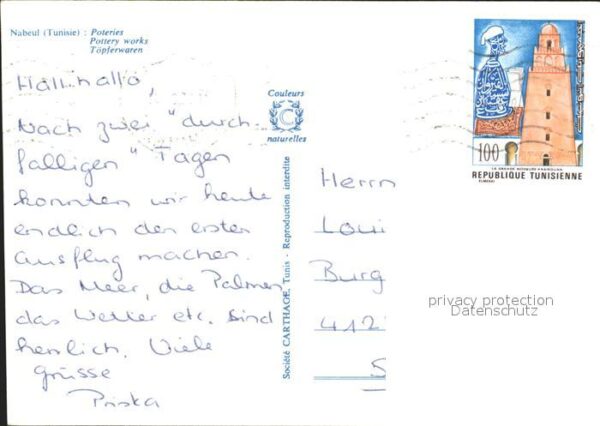 Nabeul (Tunisie) : Poteries
Pottery works
Töpferwaren
Hallihallo,
Nach zwei "durch-
falligen" Tagen
konnten wir heute
endlich den ersten
Ausflug machen.
Das Meer, die Palmen,
das Wetter etc. sind
herrlich. Viele
Grüsse
Priska
Couleurs
C
naturelles
Société CARTHAGE, Tunis - Reproduction interdite
100
LA GRANDE MOSQUEE KAIROUAN
REPUBLIQUE TUNISIENNE
Herrn
Loui
Burg
412
S
privacy protection
Datenschutz